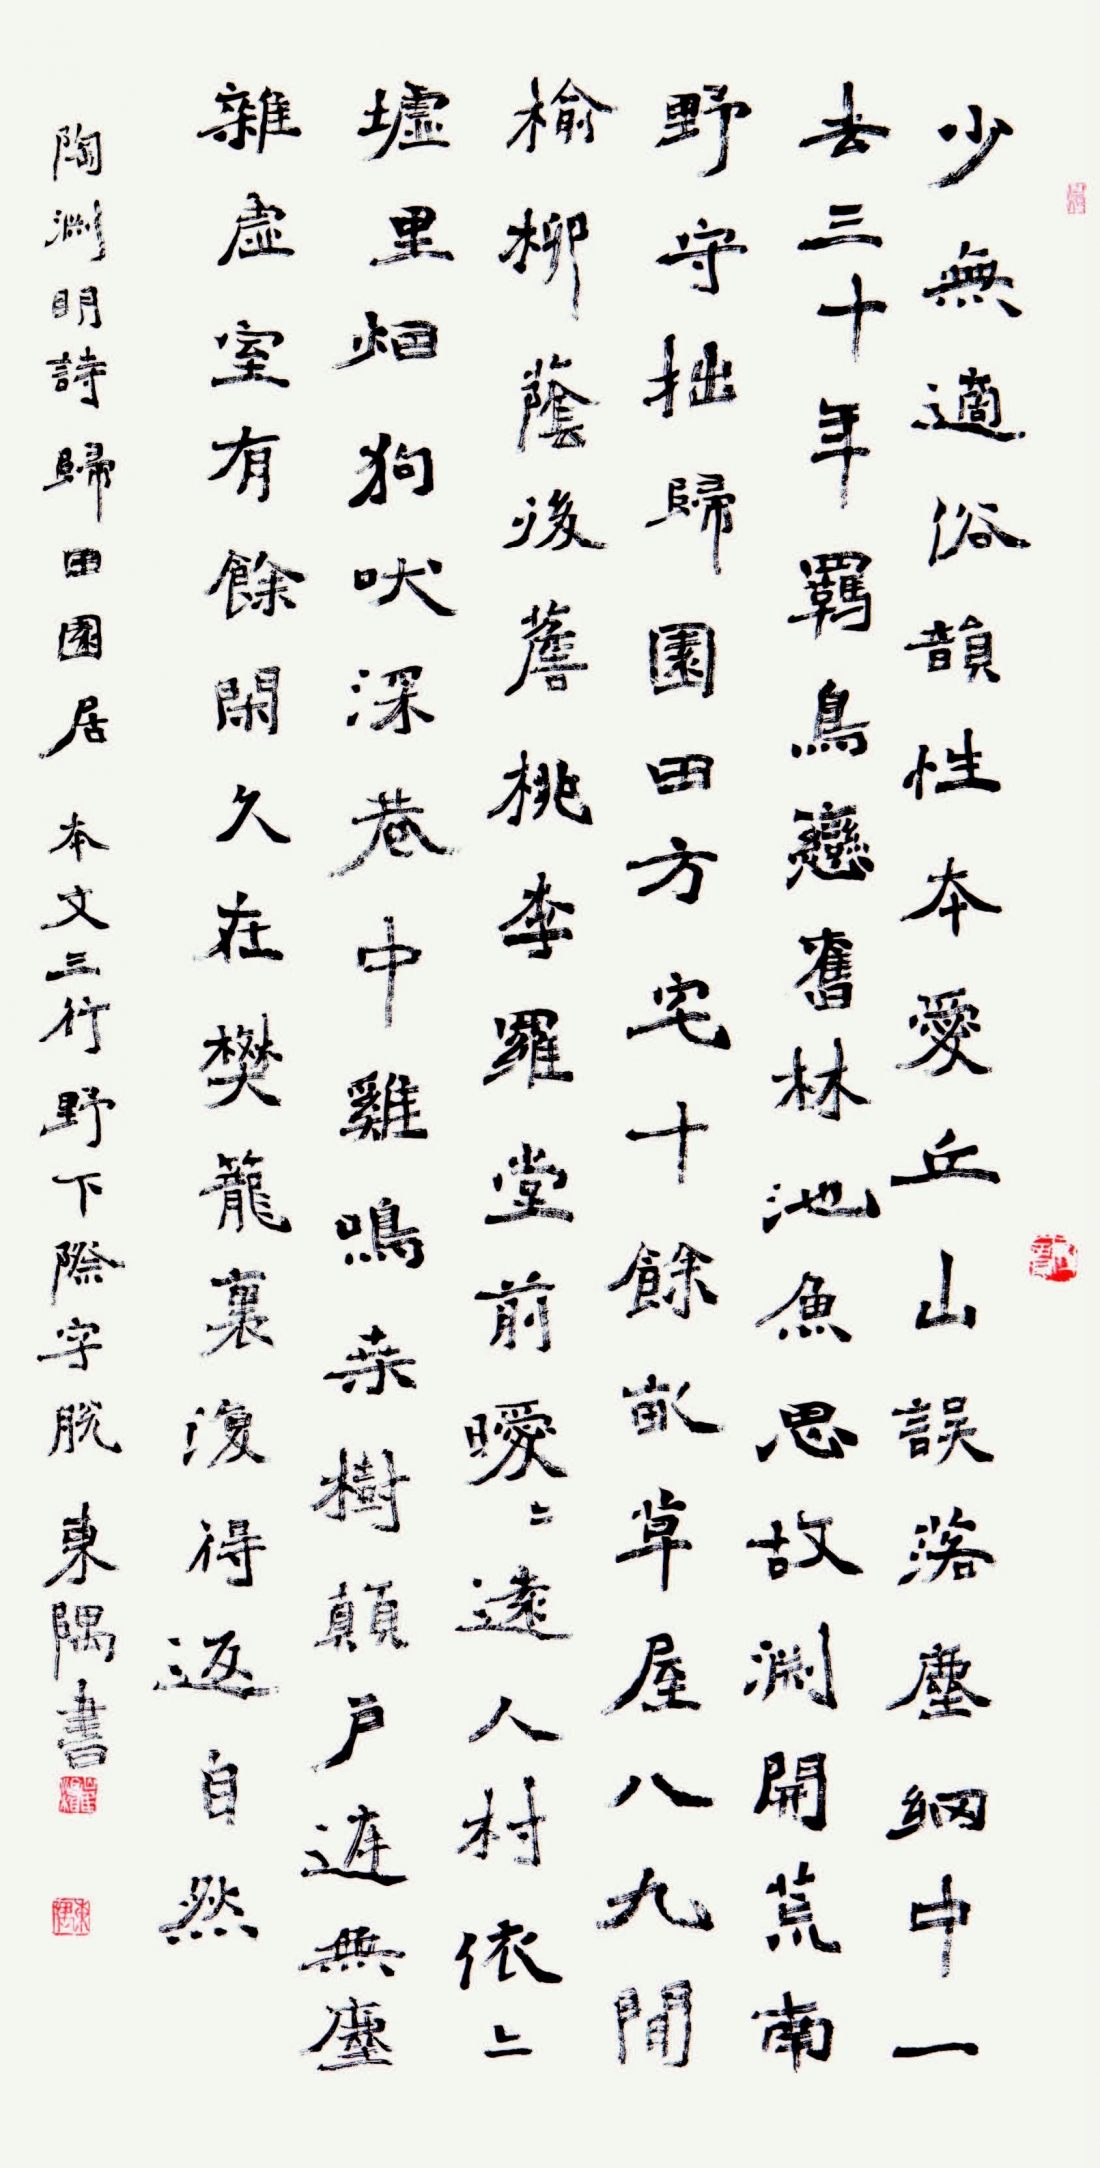 少無適俗韻性本愛丘山誤落塵網中一
去三十年羈鳥戀舊林池魚思故淵開荒南
野守拙歸園田方宅十餘畝草屋八九間
榆柳蔭後簷桃李羅堂前曖〻遠人村依〻
墟里烟狗吠深巷中雞鳴桑樹顛戶庭無塵
雜虛室有餘閑久在樊籠裏復得返自然
陶淵明詩歸田園居 本文三行野下際字脫 東隅書